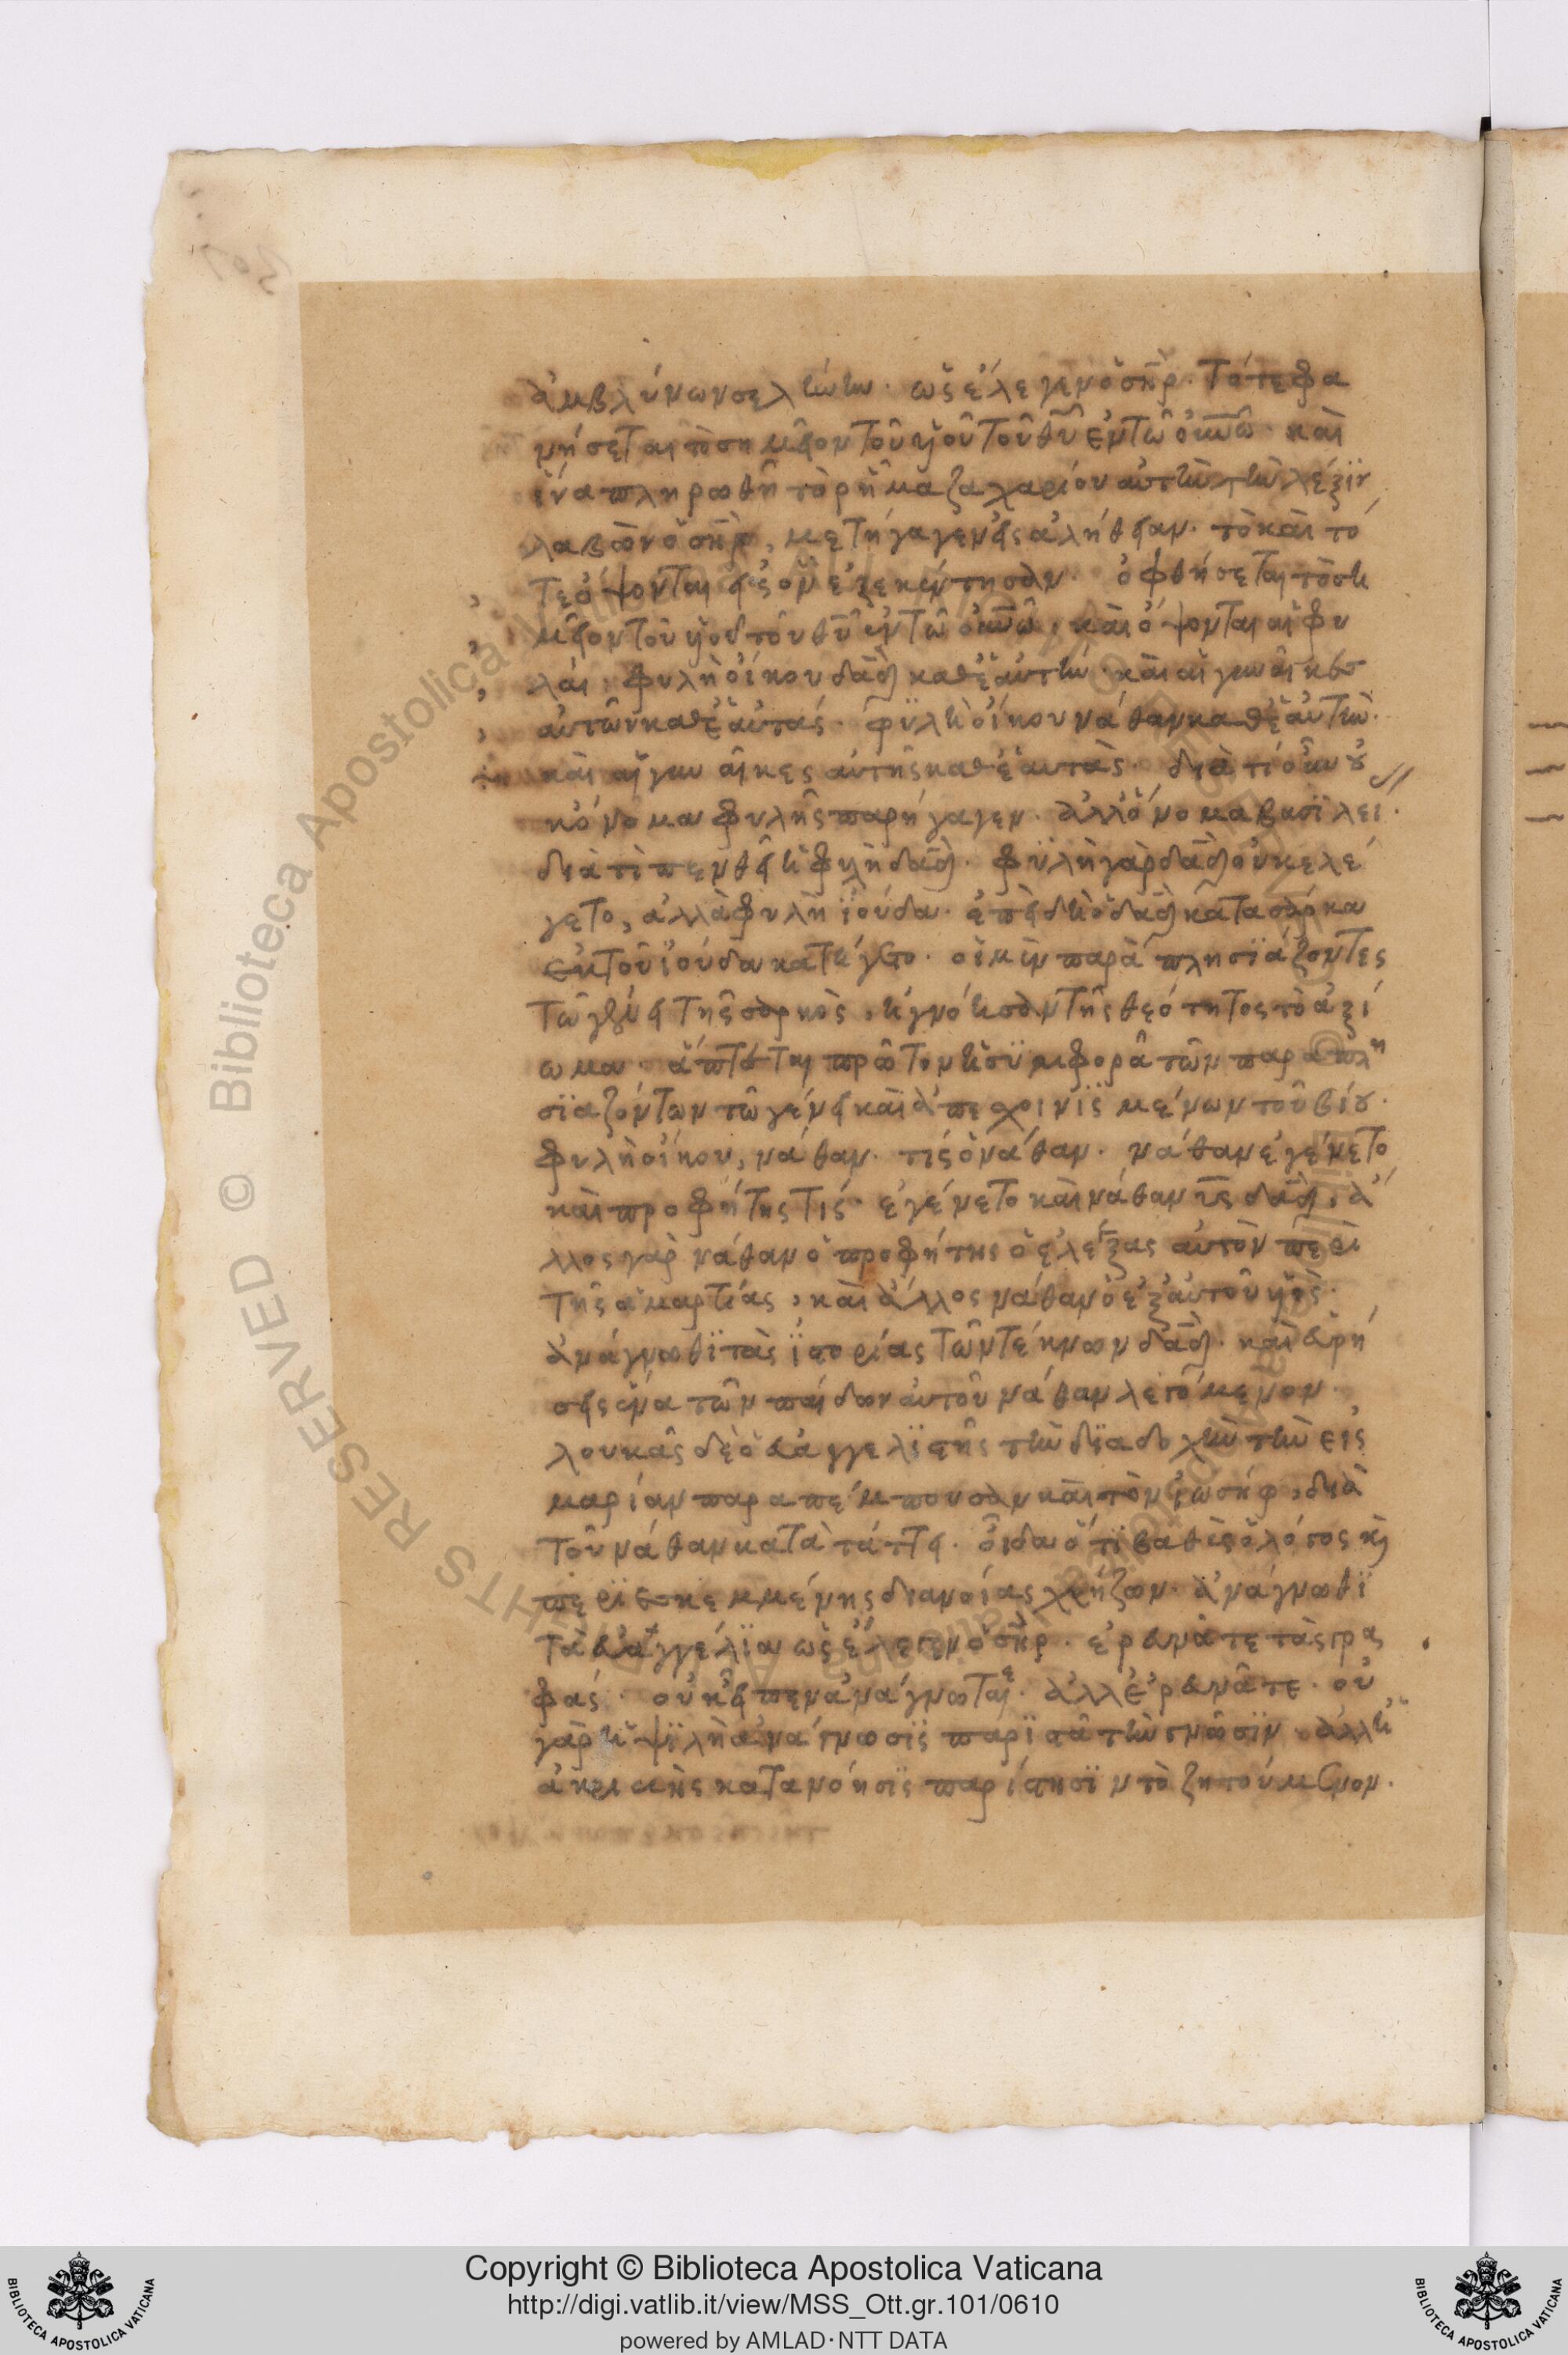 ἀμβλύνων σελήνην. ὡς ἔλεγεν ὁ σ̅η̅ρ̅. Τότε φα
νήσεται τὸ σημεῖον τοῦ υἱοῦ τοῦ θ̅υ̅ ἐν τῶ ὀυ̅νῶ. καὶ
ἵνα πληρωθῆ τὸ ρῆμα ζαχαρίου αὐτὴν τὴν λέξϊν
λαβὼν ὁ σ̅η̅ρ̅, μετήγαγεν εἰς ἀλήθειαν. τὸ καὶ τό
τε ὄψονται εἰς ὃν ἐξεκέντησαν. ὀφθήσεται τὸ ση
μεῖον τοῦ υἱοῦ τοῦ θ̅υ̅ ἐν τῶ ὀυ̅νῶ, καὶ ὄψονται αἱ φυ
λαὶ φυλὴ οἴκου δα̅δ̅ καθ' ἑαυτήν. καὶ αἱ γυναῖκες
αὐτῶν καθ' ἑαυτάς. φϋλὴ οἴκου νάθαν καθ' ἑαυτὴν.
καὶ αἱ γυναῖκες αὐτῆς καθ' ἑαυτὰς. διὰ τί ὀυν οὐ
κ ὄνομα φυλῆς παρήγαγεν. ἀλλ' ὄνομα βασϊλει.
διὰ τί πενθεῖ ἡ φυλὴ δα̅δ̅. φϋλὴ γὰρ δα̅δ̅ οὐκ ελέ
γετο, ἀλλὰ φυλὴ ϊούδα. ἐπειδὴ ὁ δα̅δ̅ κατα σάρκα
ἐκ τοῦ ϊούδα κατήγετο. οἱ μὲν παρὰ πλησϊάζοντες
τῶ γένει τῆς σαρκὸς, ἠγνόησαν τῆς θεότητος τὸ ἀξί
ωμα. ἅπτεται πρῶτον ἡ σϋμφορᾶ τῶν παραπλη
σϊαζόντων τῶ γένει καὶ ἀπεσχοινϊσμένων τοῦ βίου.
φυλὴ οἴκου, νάθαν. τίς ὁ νάθαν. νάθαν ἐγένετο
καὶ προφήτης τίς. ἐγένετο καὶ νάθαν ὑ̅ς̅ δα̅δ̅, ἄ
λλος γὰρ νάθαν ὁ προφήτης ὁ ἐλέγξας αὐτὸν περὶ
τῆς ἁμαρτίας, καὶ ἄλλος νάθαν ὁ ἐξ αὐτοῦ υἱὸς.
ἀνάγνωθϊ τὰς ϊστορίας τῶν τέκνων δα̅δ̅. καὶ εὑρή
σεις ἕνα τῶν παίδων αὐτοῦ νάθαν λεγόμενον.
λουκᾶς δὲ ὁ εὐαγγελϊστῆς τὴν δϊαδοχὴν τὴν εἰς
μαρίαν παραπέμπουσαν καὶ τὸν ϊωσήφ, διὰ
τοῦ νάθαν κατὰ τάττει. οἶδα ὅτϊ βαθὺς ὁ λόγος κ̀
περϊεσκεμμένης διανοίας χρήζων. ἀνάγνωθϊ
τὰ εὐαγγέλϊα ὡς ἔλεγεν ὁ σ̅η̅ρ̅. ἐρευνᾶτε τὰς γρα
φάς. οὐκ εἶπεν ἀνάγνωται. ἀλλ' ἐρευνᾶτε. οὐ
γὰρ ἡ ψϊλὴ ἀνάγνωσϊς παρϊστᾶ τὴν γνῶσϊν. ἀλλ' ἡ
ἀκριβὴς κατανόησϊς παρίστησϊν τὸ ζητούμενον.
Copyright © Biblioteca Apostolica Vaticana
http://digi.vatlib.it/view/MSS_Ott.gr.101/0610
powered by AMLAD·NTT DATA